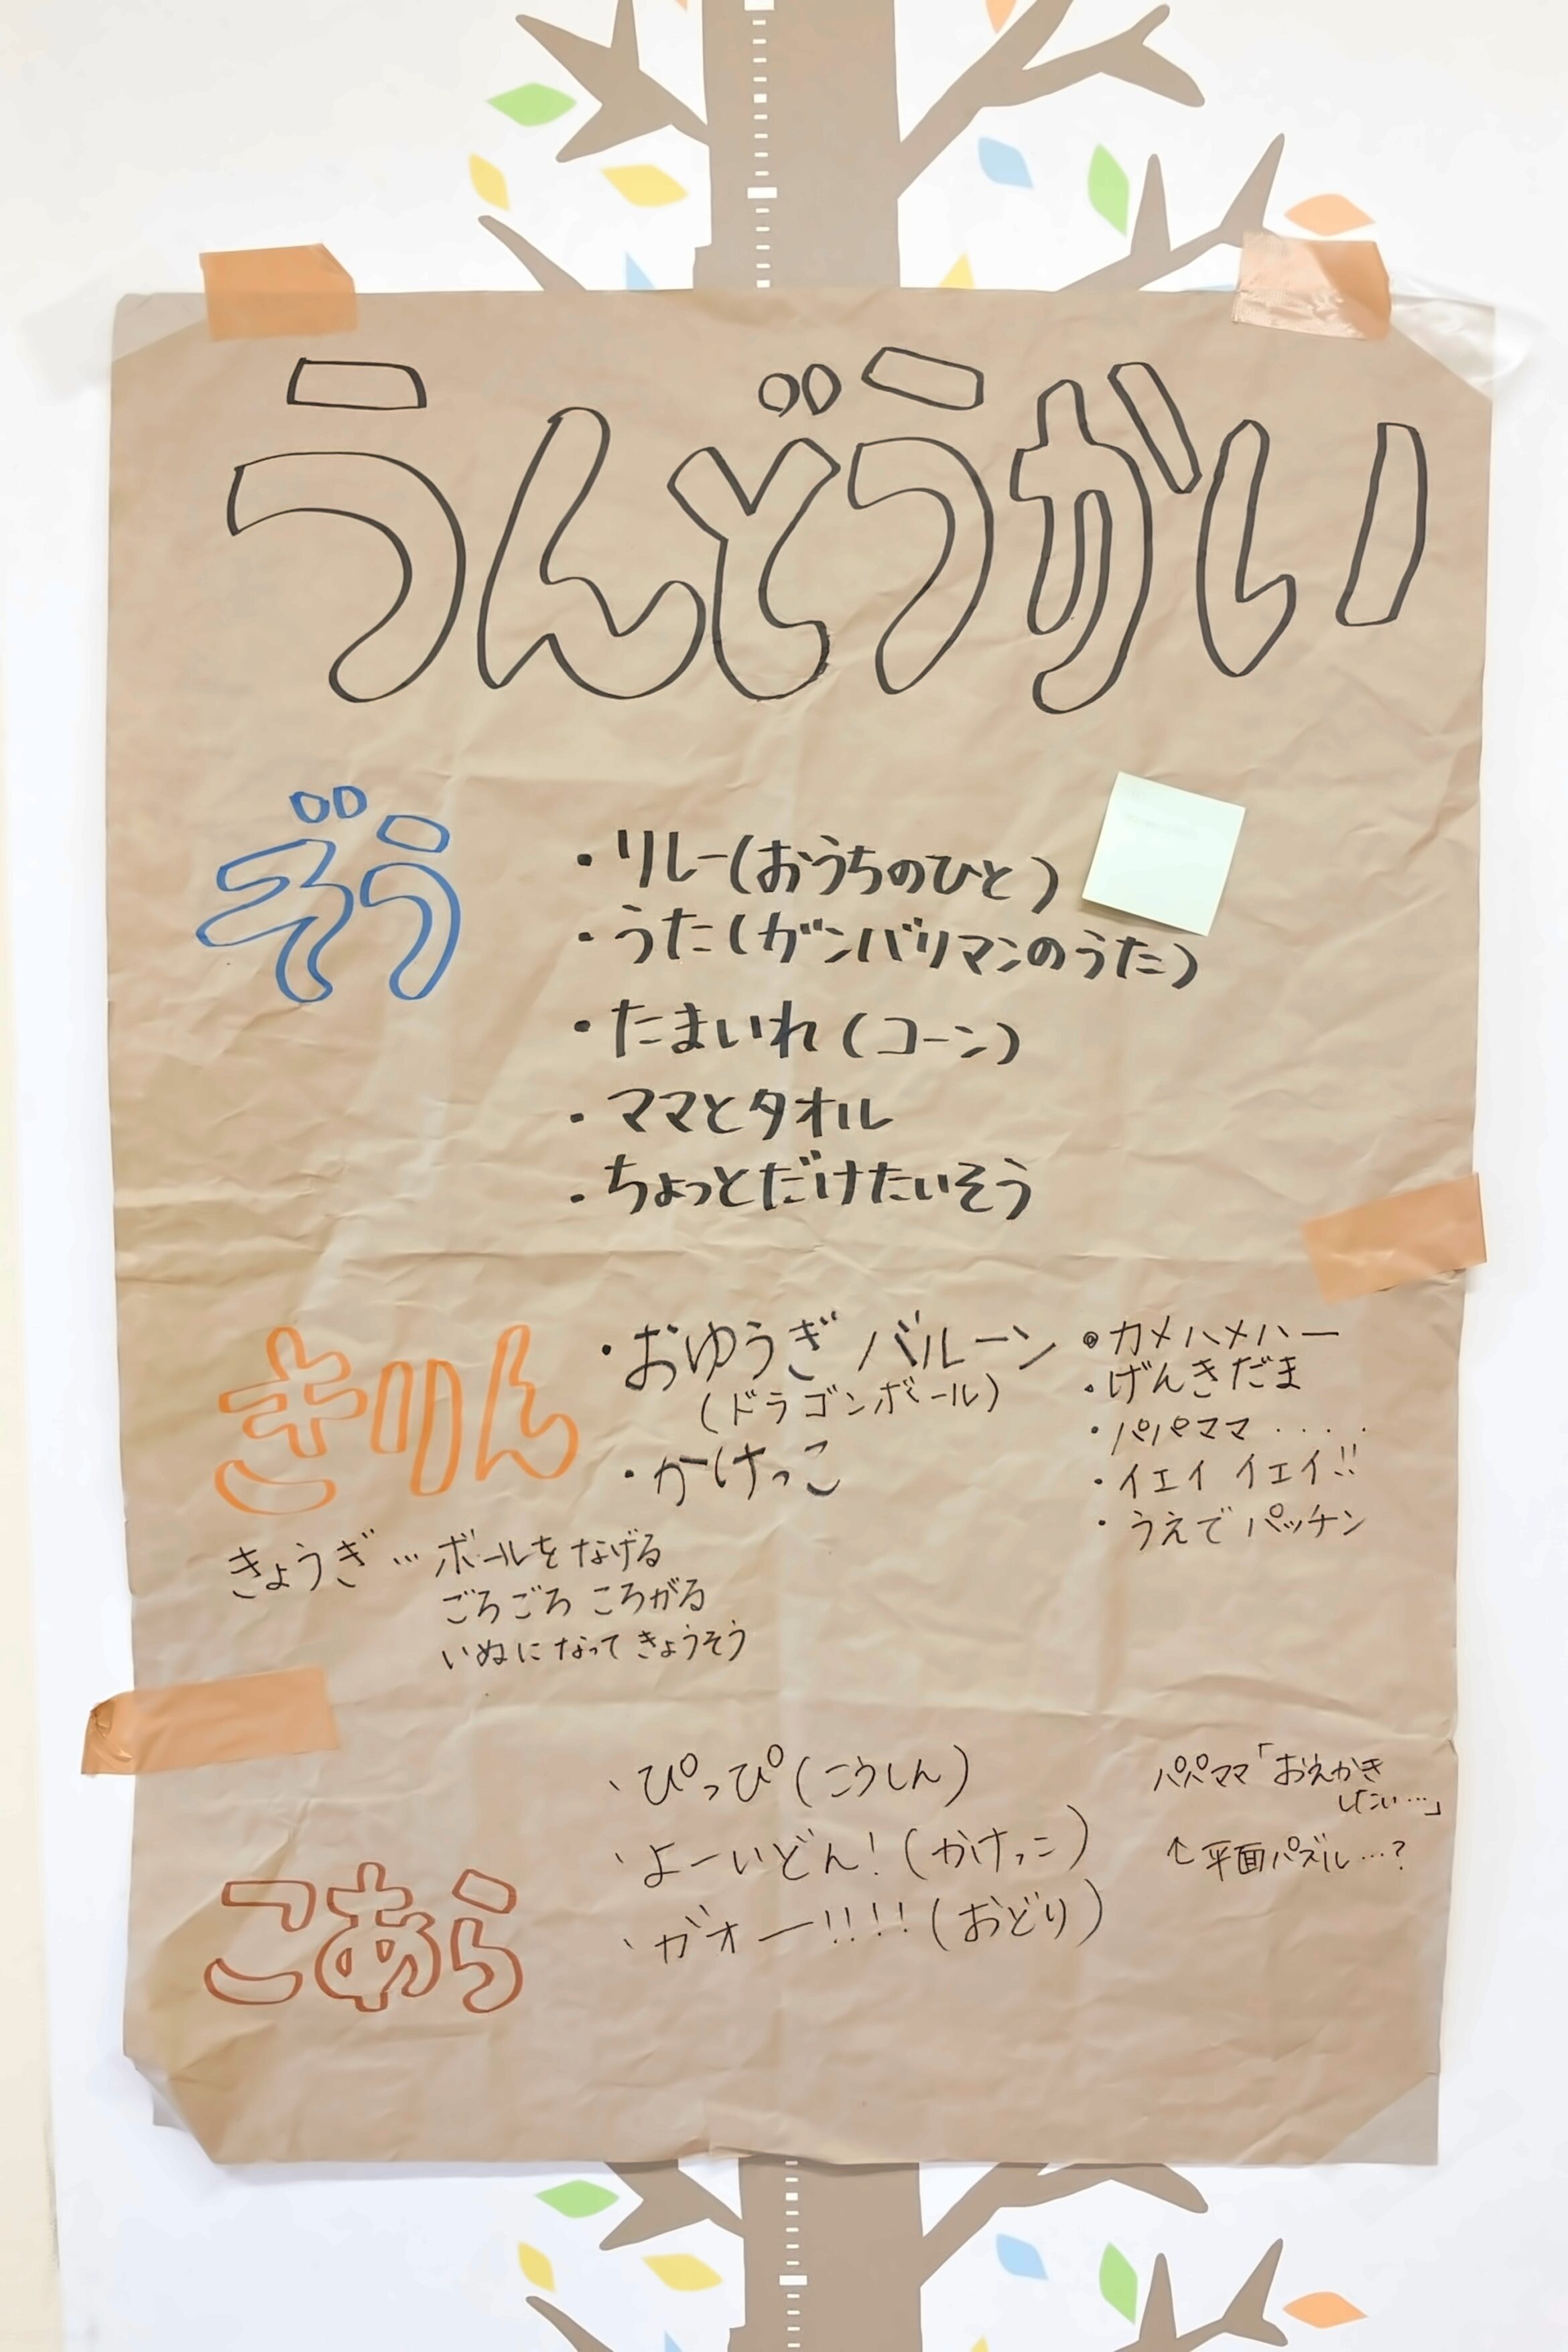 うんどうかい
ぞう
・リレー(おうちのひと)
・うた(ガンバリマンのうた)
・たまいれ(コーン)
・ママとタオル
・ちょっとだけたいそう
きりん
・おゆうぎ バルーン
(ドラゴンボール)
・かけっこ
・カメハメハー
・げんきだま
・パパママ ・・・・・
・イエイ イエイ!!
・うえでパッチン
きょうぎ…ボールをなげる
ごろごろ ころがる
いぬに なって きょうそう
こあら
、ぴっぴ(こうしん)
、よーいどん!(かけっこ)
、ガオー!!!!(おどり)
パパママ「おえかき
したい…」
↑平面パズル…?